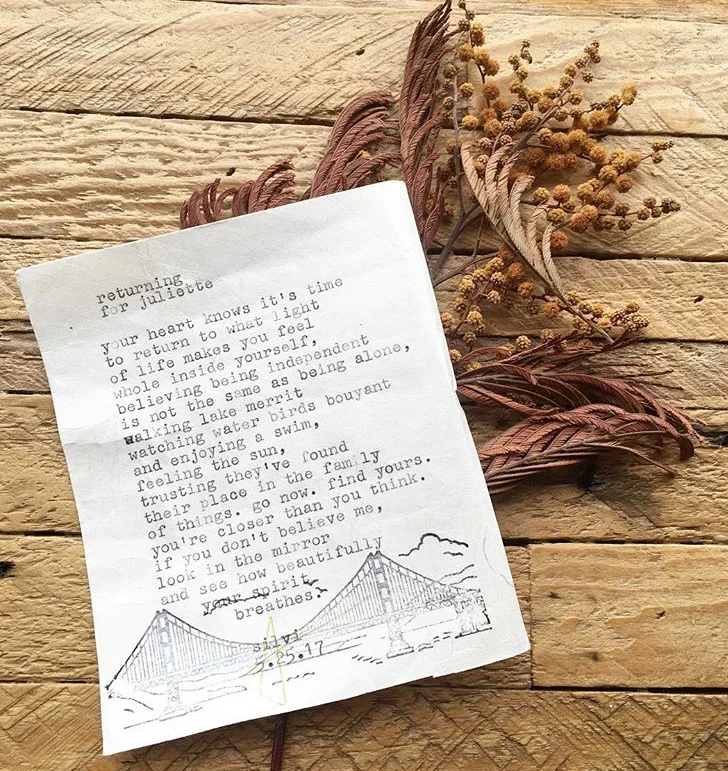 returning
for juliette
your heart knows it's time
to return to what light
of life makes you feel
whole inside yourself,
believing being independent
is not the same as being alone,
walking lake merrit
watching water birds bouyant
and enjoying a swim,
feeling the sun,
trusting they've found
their place in the family
of things. go now. find yours.
you're closer than you think.
if you don't believe me,
look in the mirror
and see how beautifully
your spirit
breathes.
silvi
5.25.17